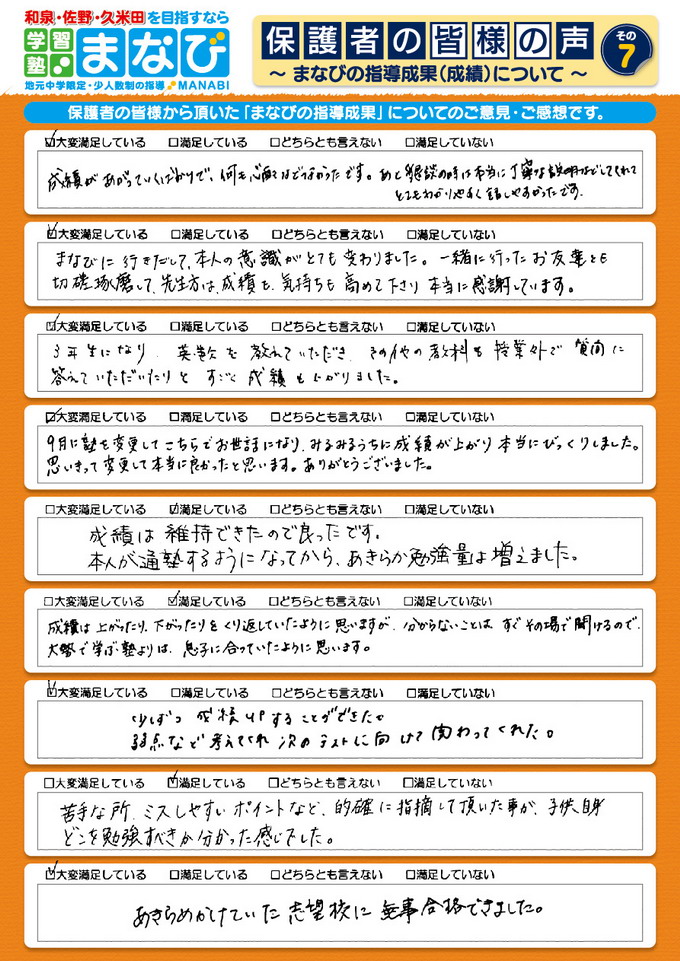 和泉・佐野・久米田を目指すなら
学習塾 まなび
地元中学限定・少人数制の指導 MANABI
保護者の皆様の声 その7
～ まなびの指導成果(成績)について ～
保護者の皆様から頂いた「まなびの指導成果」についてのご意見・ご感想です。
☑大変満足している □満足している □どちらとも言えない □満足していない
成績があがっていくばかりで、何も心配はなかったです。あと懇談の時は本当に丁寧な説明などしてくれて
とてもわかりやすく話しやすかったです.
☑大変満足している □満足している □どちらとも言えない □満足していない
まなびに行きだして、本人の意識がとても変わりました。一緒に行ったお友達とも
切磋琢磨して、先生方は、成績も、気持ちも高めて下さり本当に感謝しています。
☑大変満足している □満足している □どちらとも言えない □満足していない
3年生になり、英数を教えていただき、その他の教科も授業外で質問に
答えていただいたりと すごく成績も上がりました。
☑大変満足している □満足している □どちらとも言えない □満足していない
9月に塾を変更してこちらでお世話になり、みるみるうちに成績が上がり本当にびっくりしました。
思いきって変更して本当に良かったと思います。ありがとうございました。
□大変満足している ☑満足している □どちらとも言えない □満足していない
成績は維持できたので良ったです。
本人が通塾するようになってから、あきらか勉強量は増えました。
□大変満足している ☑満足している □どちらとも言えない □満足していない
成績は上がったり、下がったりをくり返していたように思いますが、分からないことは すぐその場で聞けるので、
大勢で学ぶ塾よりは、息子に合っていたように思います。
☑大変満足している □満足している □どちらとも言えない □満足していない
少しずつ 成績UPすることができた。
弱点など考えてくれ 次のテストに向けて関わってくれた。
□大変満足している ☑満足している □どちらとも言えない □満足していない
苦手な所、ミスしやすいポイントなど、的確に指摘して頂いた事が、子供自身
どこを勉強すべきか分かった感じでした。
☑大変満足している □満足している □どちらとも言えない □満足していない
あきらめかけていた志望校に無事合格できました。